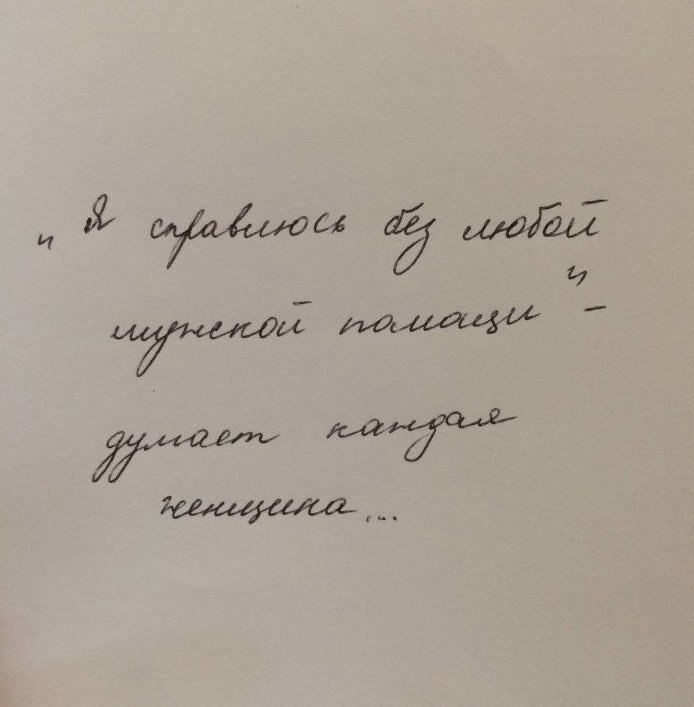 „Я справлюсь без любой
мужской помощи" –
думает каждая
женщина...